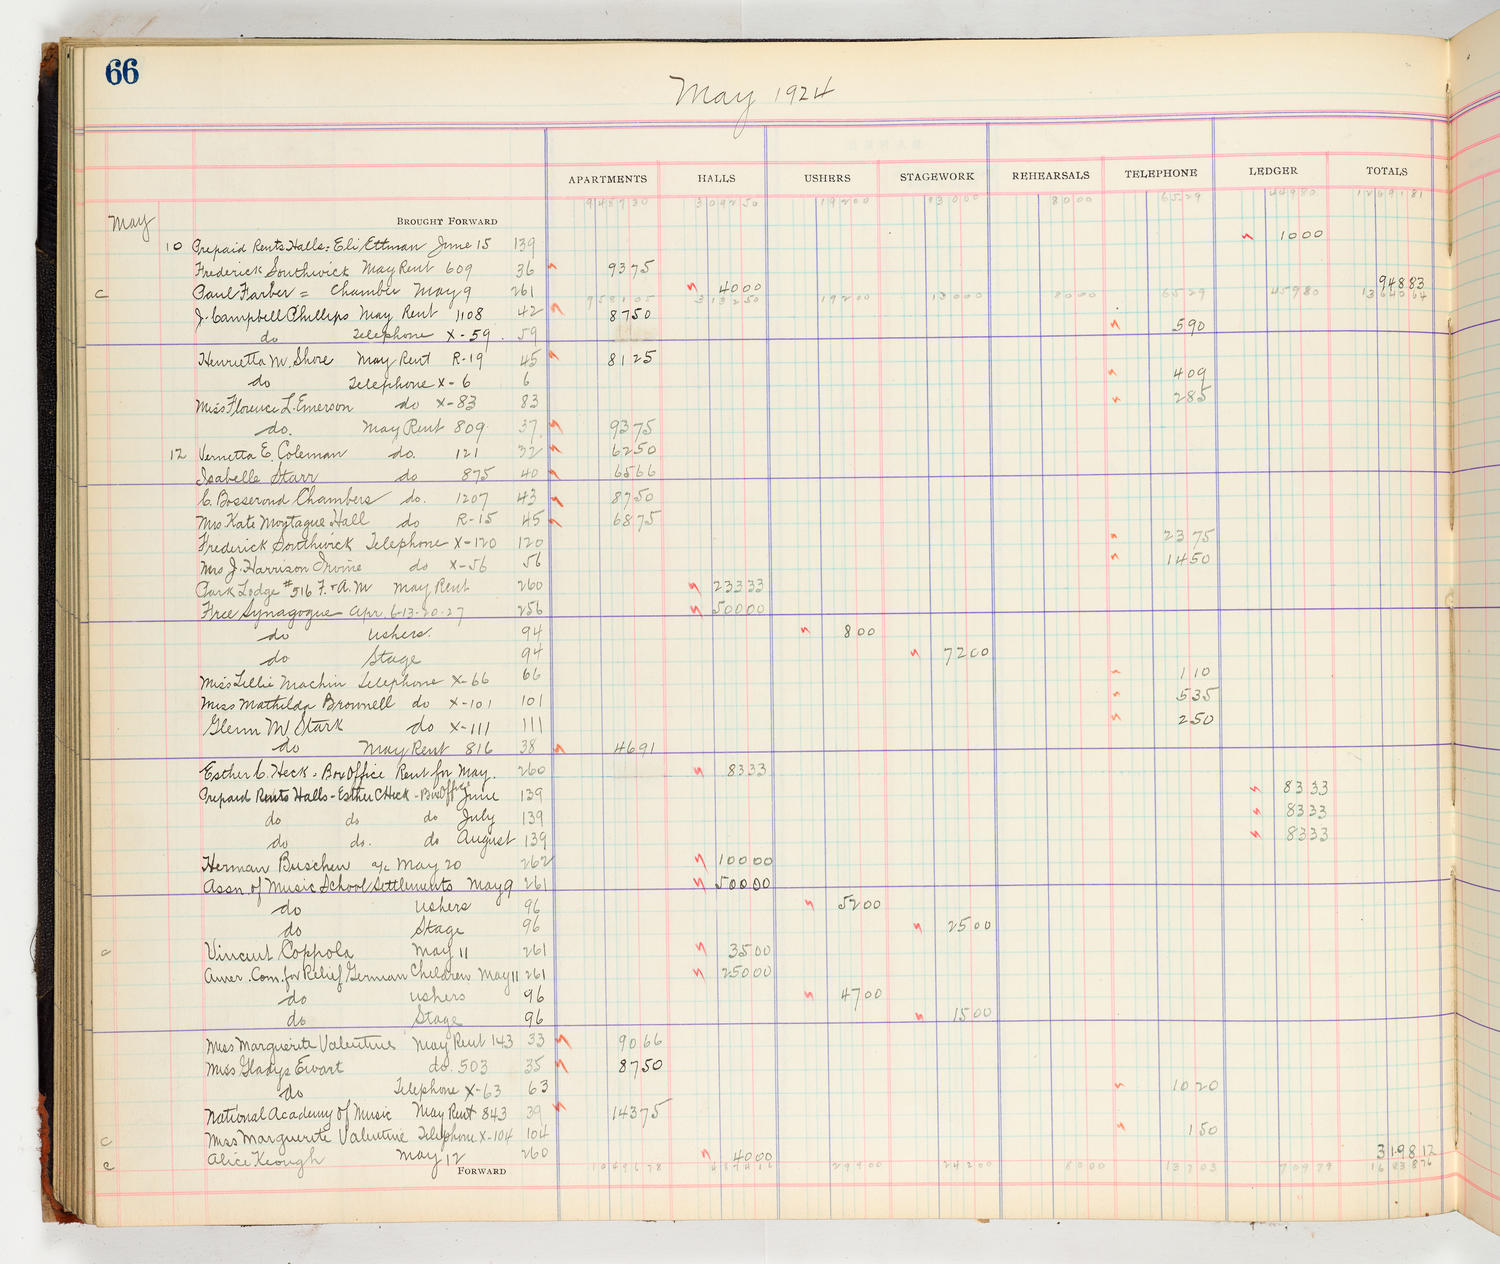 66
May 1924
APARTMENTS HALLS USHERS STAGEWORK REHEARSALS TELEPHONE LEDGER TOTALS
May BROUGHT FORWARD 948930 309250 19200 13000 8000 6529 44980
10 Prepaid Rents Halls: Eli Ettman June 15 139 1000
Frederick Southwick May Rent 609 36 9375
c Paul Farber = Chamber May 9 261 4000 94883
958105 313250 19200 13000 8000 6529 45980
J. Campbell Phillips May Rent 1108 42 8750
do Telephone X-59. 59 590
Henrietta M. Shore May Rent R-19 45 8125
do Telephone X-6 6 409
Miss Florence L. Emerson do X-83 83 285
do. May Rent 809 37 9375
12 Vernetta E. Coleman do. 121 32 6250
Isabelle Starr do 875 40 6566
C. Bosseroud Chambers do. 1207 43 8750
Mrs Kate Moytague Hall do R-15 45 6875
Frederick Southwick Telephone X-120 120 2375
Mrs J. Harrison Irvine do X-56 56 1450
Park Lodge #516 F. & A. M May Rent 260 23333
Free Synagogue Apr. 6-13-20-27 256 50000
do Ushers. 94 800
do Stage 94 7200
Miss Lillie Machin Telephone X-66 66 110
Miss Mathilda Brownell do X-101 101 535
Glenn M Stark do X-111 111 250
do May Rent 816 38 4691
Esther C. Heck - Box Office Rent for May. 260 8333
Prepaid Rents Halls - Esther C Heck - Box Office June 139 8333
do do do July 139 8333
do do. do August 139 8333
Herman Buschen a/c May 20 262 10000
Assn. of Music School Settlements May 9 261 50000
do ushers 96 5200
do Stage 96 2500
c Vincent Coppola May 11 261 3500
Amer. Com. for Relief German Children May 11 261 25000
do ushers 96 4700
do Stage 96 1500
Miss Marguerite Valentine May Rent 143 33 9066
Miss Gladys Ewart do. 503 35 8750
do Telephone X-63 63 1020
National Academy of Music May Rent 843 39 14375
c Miss Marguerite Valentine Telephone X-104 104 150
c Alice Keough May 12 260 4000 319812
FORWARD 1049678 29900 24200 8000 13703 70979